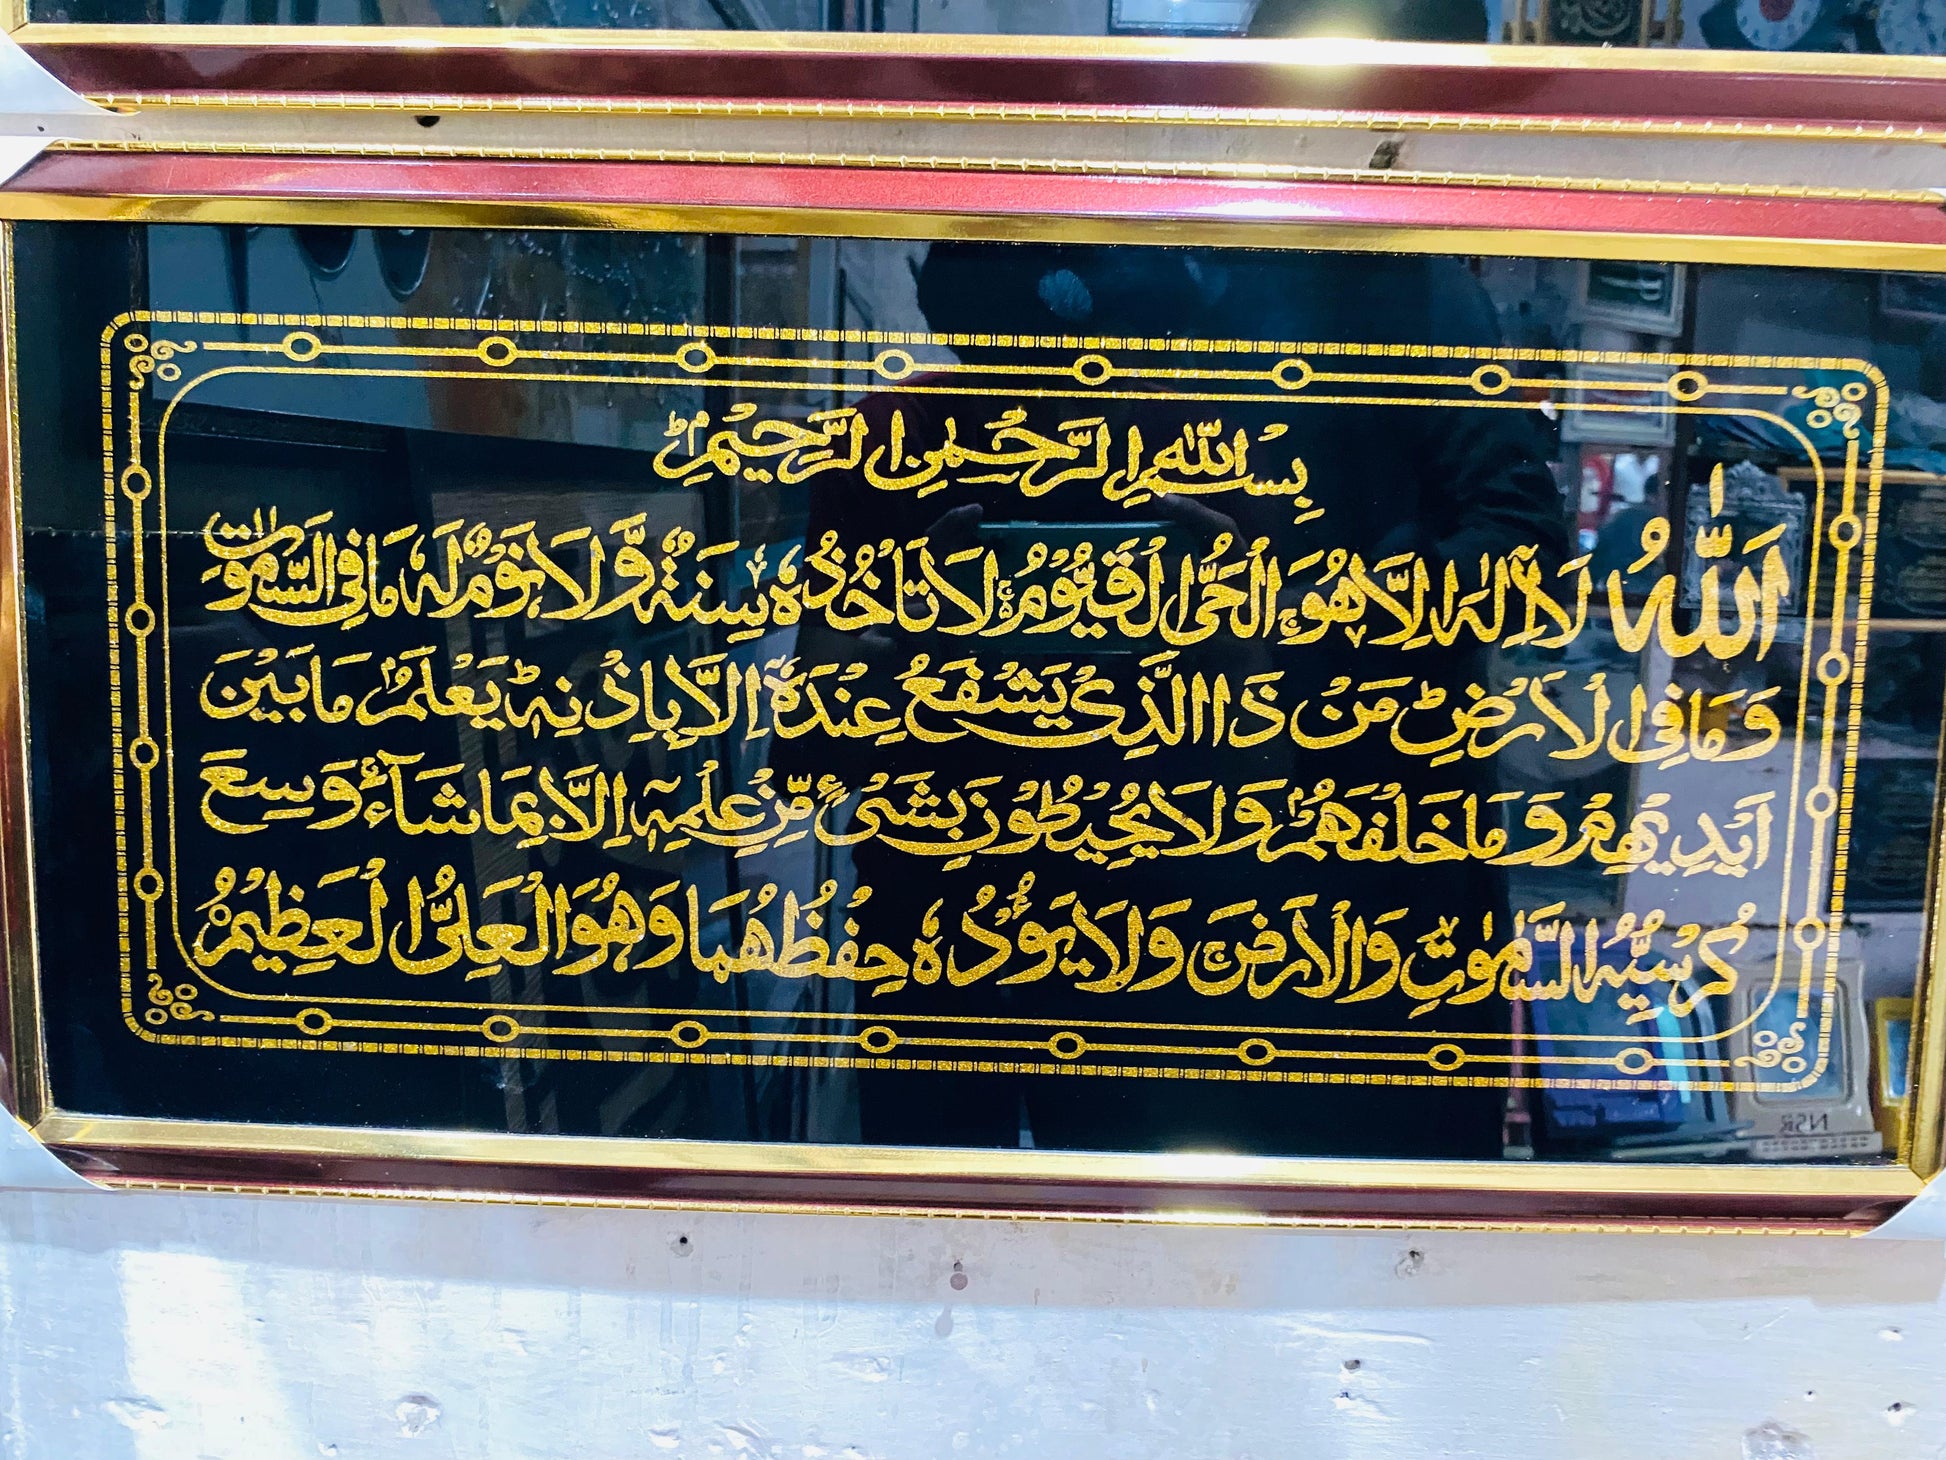 بِسْمِ اللّٰهِ الرَّحْمٰنِ الرَّحِيْمِ ؕ
اَللّٰهُ لَاۤ اِلٰهَ اِلَّا هُوَ ۚ اَلْحَيُّ الْقَيُّوْمُ ۚ۬ لَا تَاْخُذُهٗ سِنَةٌ وَّلَا نَوْمٌ ؕ لَهٗ مَا فِی السَّمٰوٰتِ
وَمَا فِی الْاَرْضِ ؕ مَنْ ذَا الَّذِیْ یَشْفَعُ عِنْدَهٗۤ اِلَّا بِاِذْنِهٖ ؕ یَعْلَمُ مَا بَیْنَ
اَیْدِیْهِمْ وَمَا خَلْفَهُمْ ۚ وَلَا یُحِیْطُوْنَ بِشَیْءٍ مِّنْ عِلْمِهٖۤ اِلَّا بِمَا شَآءَ ۚ وَسِعَ
كُرْسِیُّهُ السَّمٰوٰتِ وَالْاَرْضَ ۚ وَلَا یَـُٔوْدُهٗ حِفْظُهُمَا ۚ وَهُوَ الْعَلِیُّ الْعَظِیْمُ
NSR